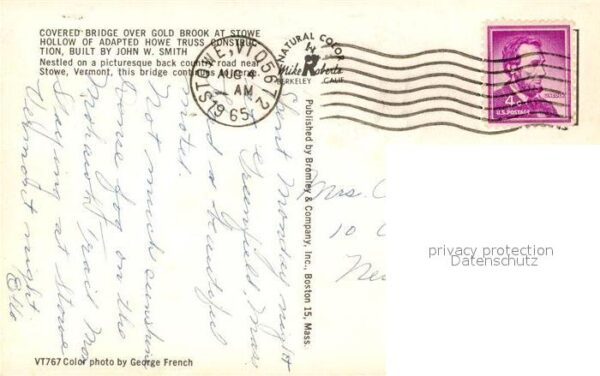 COVERED BRIDGE OVER GOLD BROOK AT STOWE
HOLLOW OF ADAPTED HOWE TRUSS CONSTRUC-
TION, BUILT BY JOHN W. SMITH
Nestled on a picturesque back country road near
Stowe, Vermont, this bridge continues to serve.
STOWE, VT 05672
AUG 4
AM
1965
NATURAL COLOR
BY
Mike Roberts
BERKELEY CALIF
4c
U.S. POSTAGE
Published by Bromley & Company, Inc., Boston 15, Mass.
Spent Monday night
at Greenfield, Mass
had a beautiful
motel.
Not much sunshine
Dense fog on the
Mohawk Trail
Staying at Stowe
Vermont tonight
Mrs.
10
privacy protection
Datenschutz
VT767 Color photo by George French